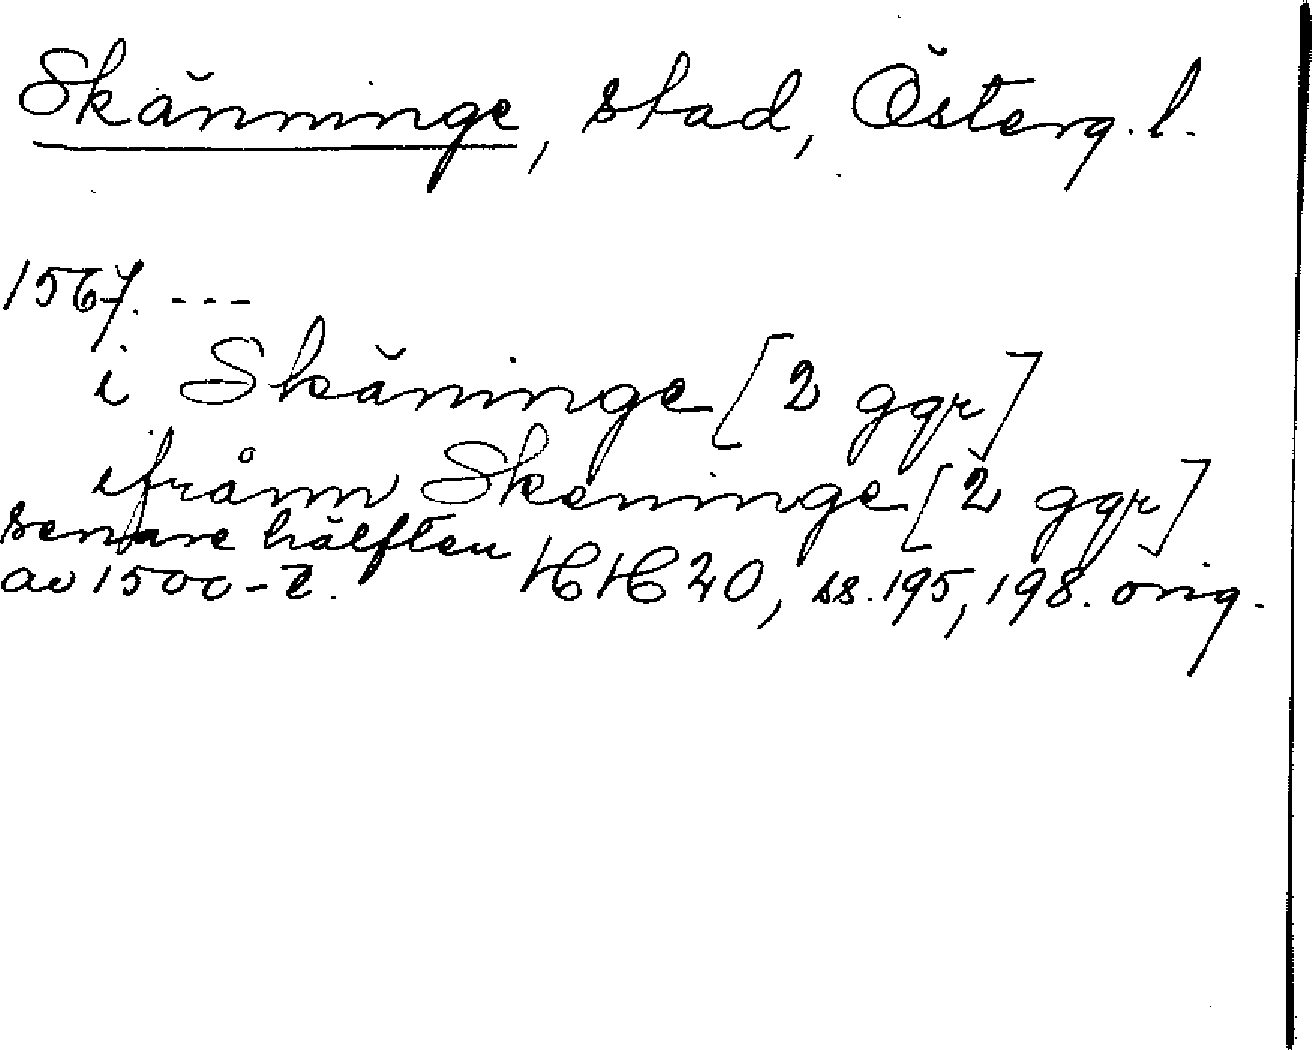 Skänninge, stad, Österg. l.
1567. ---
i Skäninge [2 ggr]
ifrånn Skeninge [2 ggr]
senare hälften
av 1500-t. HH 20, ss. 195, 198. orig.